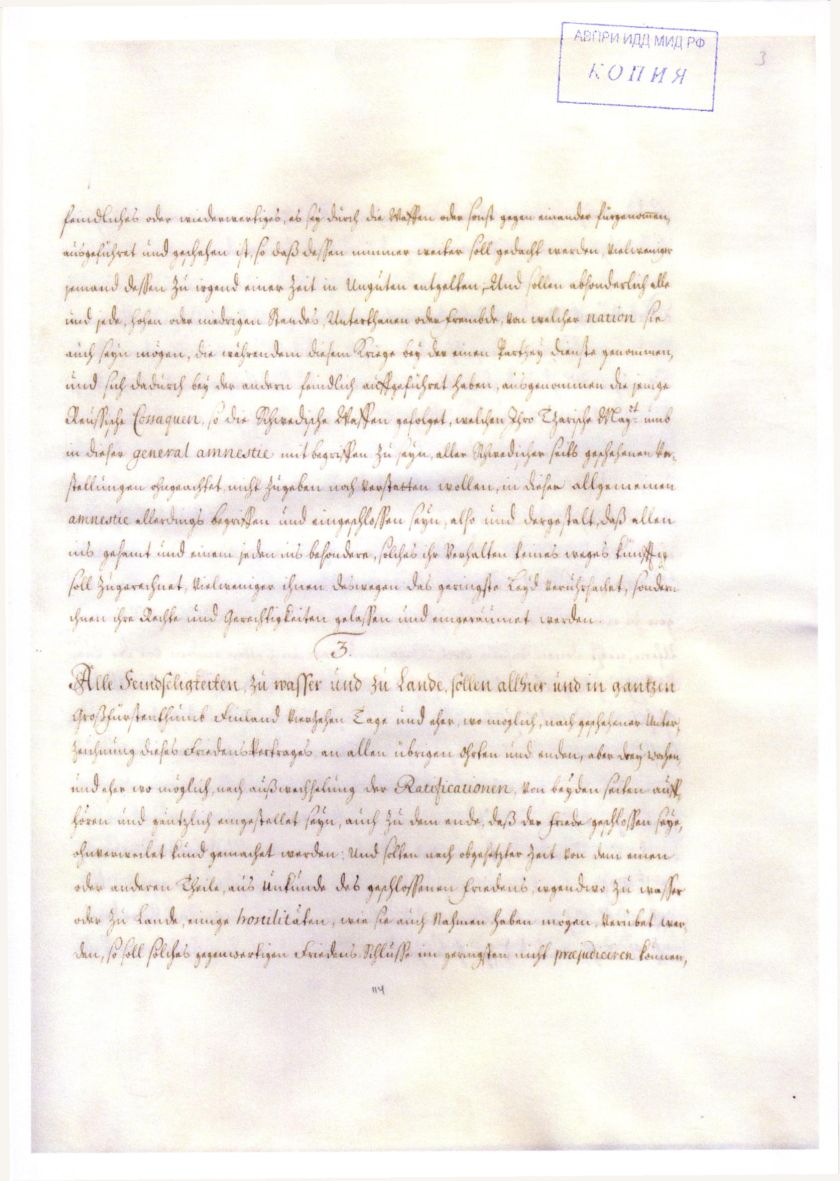 АВПРИ ИДД МИД РФ
КОПИЯ
3
feindliches oder wiederwertiges, es sey durch die Waffen oder sonst gegen einander fürgenom̄en,
ausgeführet und geschehen ist, so daß dessen nimmer weiter soll gedacht werden, vielweniger
jemand dessen zu irgend einer Zeit in Unguten entgelten, Und sollen absonderlich alle
und jede, hohen oder niedrigen Standes, Unterthanen oder Frembde, von welcher nation sie
auch seyn mögen, die währendem diesem Kriege bey der einen Parthey dienste genommen,
und sich dadurch bey der andern feindlich auffgeführet haben, ausgenommen die jenige
Reussische Cossaquen, so die Schwedische Waffen gefolget, welchen Ihro Czarische May:t umb
in dieser general amnestie mit begriffen zu seyn, aller Schwedischer seits geschehenen Vor-
stellungen ohngeachtet, nicht zugeben noch verstatten wollen, in dieser allgemeinen
amnestie allerdings begriffen und eingeschlossen seyn, also und dergestalt, daß allen
ins gesamt und einem jeden ins besondere, solches ihr Verhalten keines weges künfftig
soll zugerechnet, vielweniger ihnen deswegen das geringste Leyd verührsachet, sondern
ihnen ihre Rechte und Gerechtigkeiten gelassen und eingeräumet werden.
3.
Alle Feindseligkeiten, zu wasser und zu Lande, sollen allhier und in gantzen
Großfürstenthumb Finland vierzehen Tage und eher, wo möglich, nach geschehener Unter-
zeichnung dieses Friedens Vertrages an allen übrigen Ohrten und enden, aber drey wochen,
und eher wo möglich, nach außwechselung der Ratificationen, von beyden seiten auff-
hören und gäntzlich eingestellet seyn, auch zu dem ende, daß der Friede geschlossen seye,
ohnverweilet kund gemachet werden; Und solten nach obgesetzter Zeit von dem einen
oder anderen Theile, aus Unkunde des geschlossenen Friedens, irgendwo zu wasser
oder zu Lande, einige hostilitäten, wie sie auch Nahmen haben mögen, verübet wer-
den, so soll solches gegenwertigen Friedens Schlusse im geringsten nicht præjudiciren können,
114